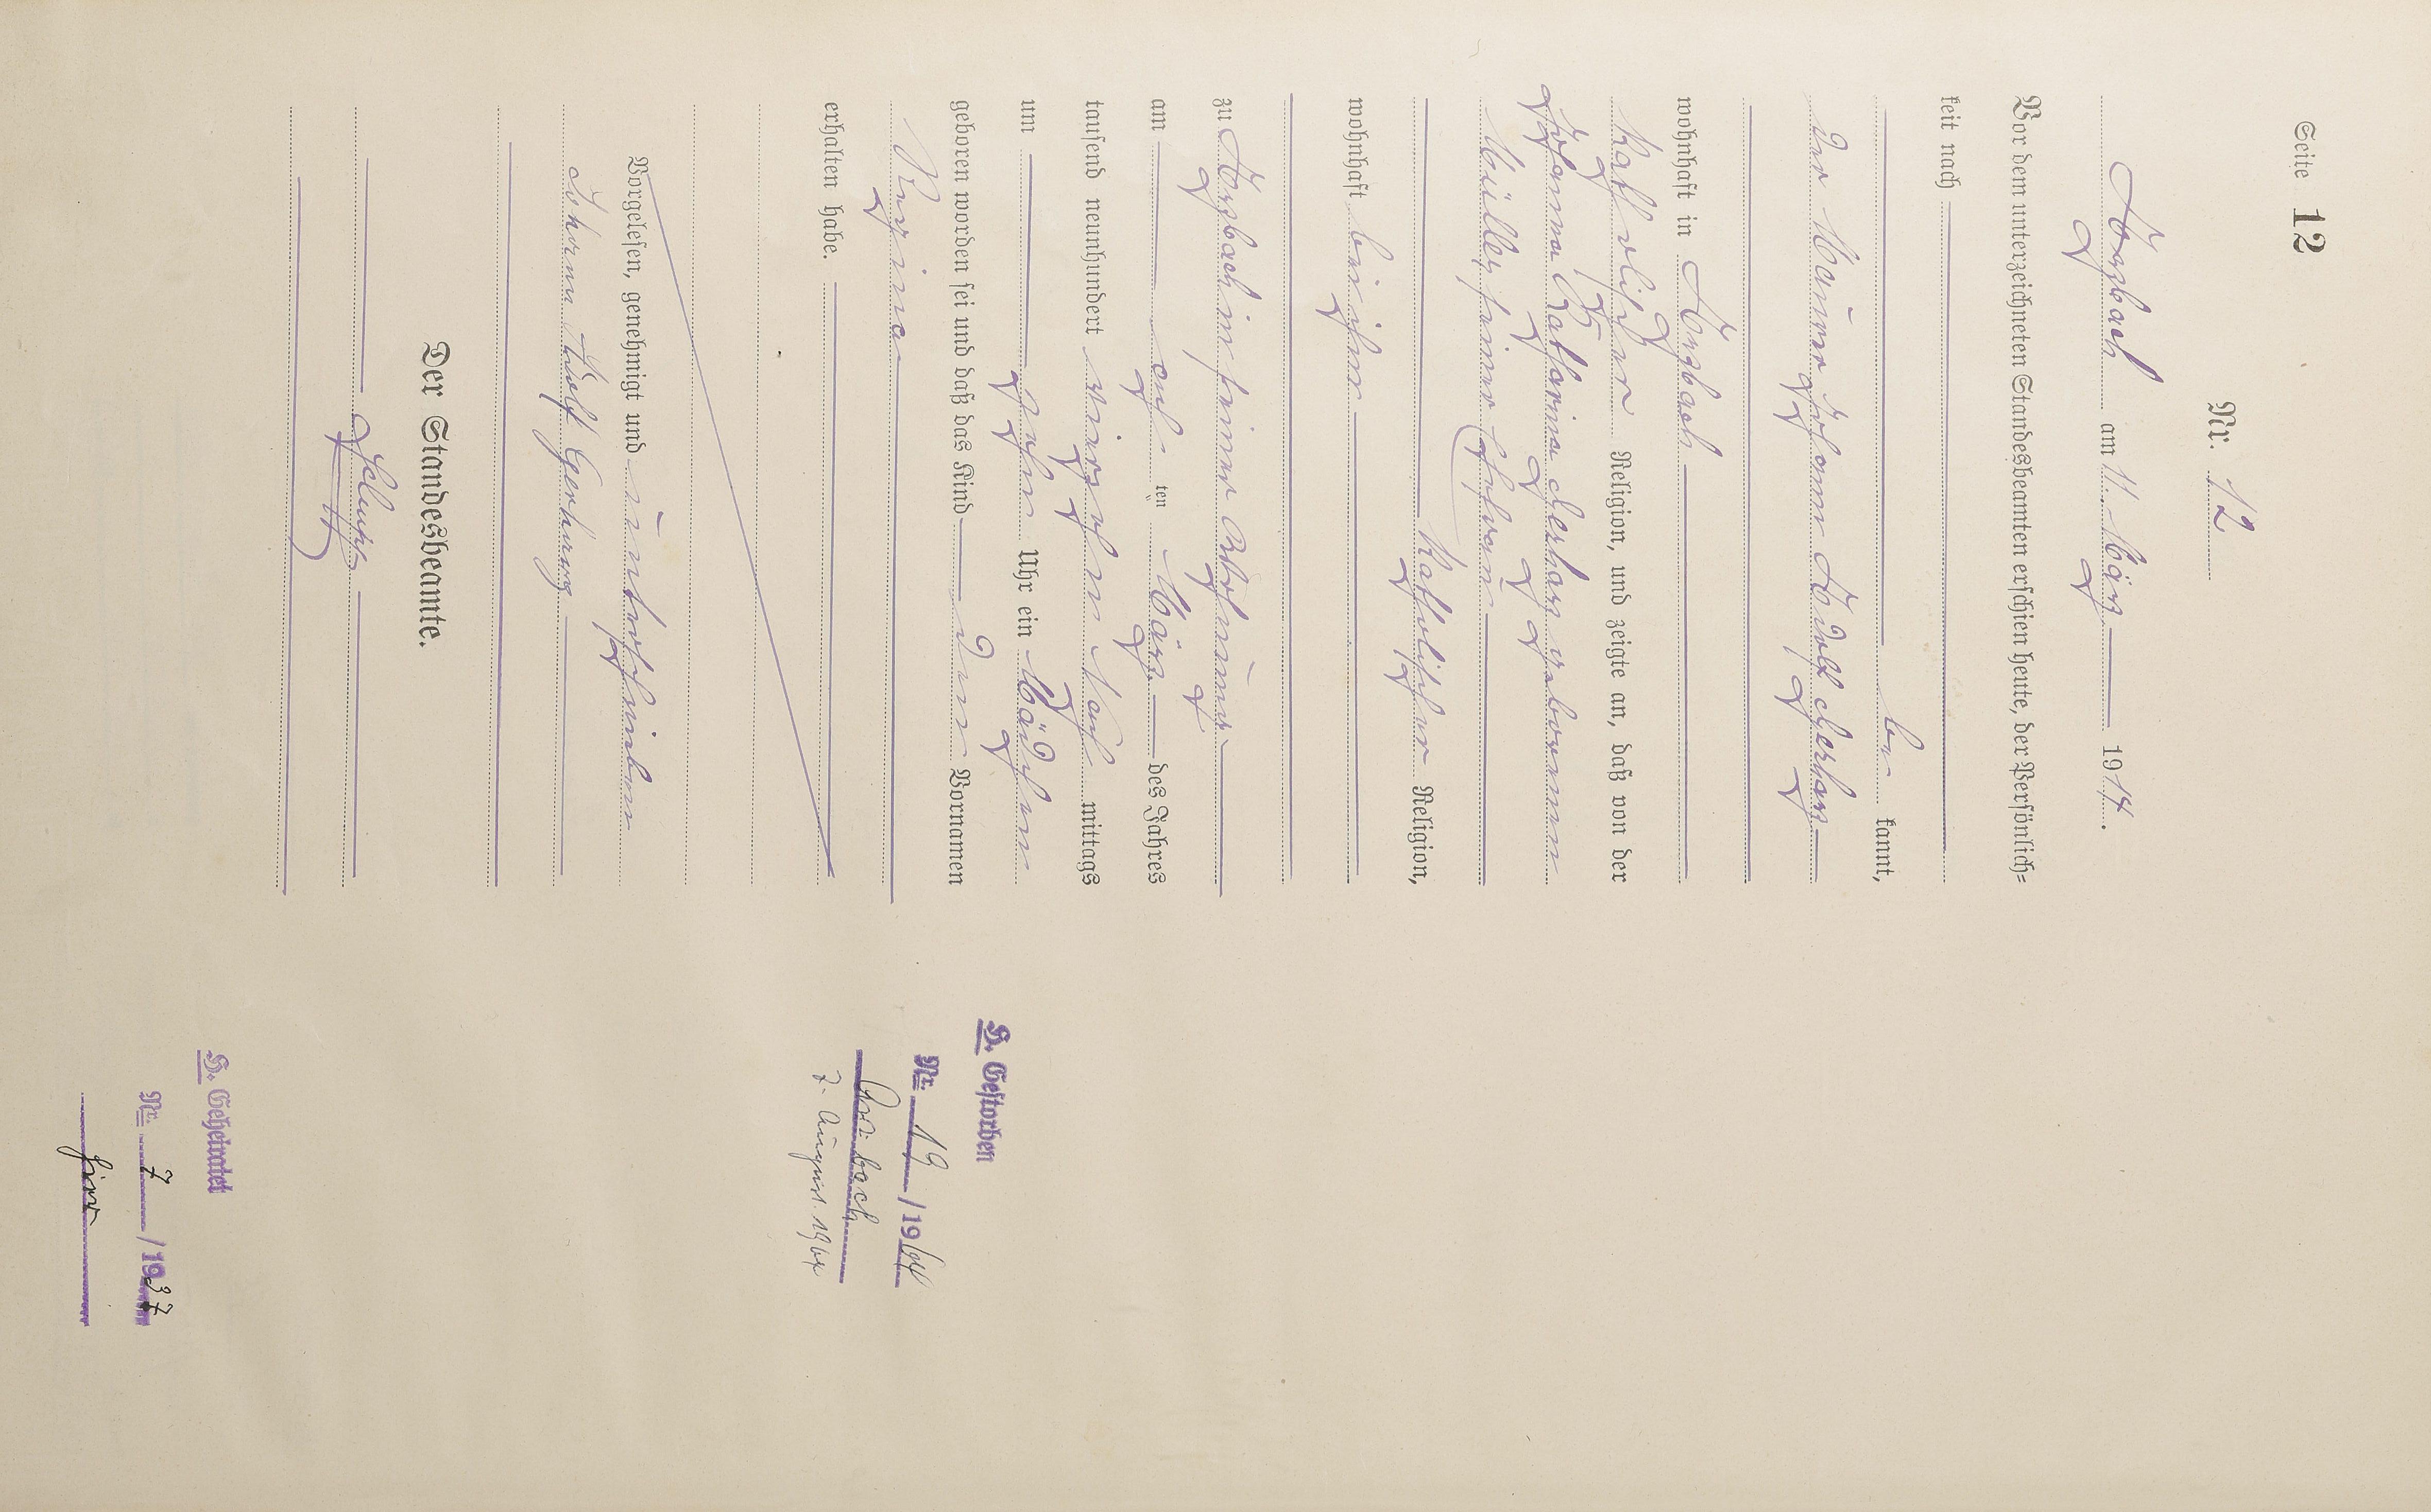 Seite 12
Nr. 12
Arzbach am 11. März 1914.
Vor dem unterzeichneten Standesbeamten erschien heute, der Persönlich-
keit nach
be kannt,
der Maurer Johann Adolf Gerharz
wohnhaft in Arzbach
katholischer Religion, und zeigte an, daß von der
Johanna Katharina Gerharz geborenen
Müller, seiner Ehefrau
katholischer Religion,
wohnhaft bei ihm
zu Arzbach in seiner Wohnung
am acht ten März des Jahres
tausend neunhundert vierzehn Nach mittags
um zehn Uhr ein Mädchen
geboren worden sei und daß das Kind den Vornamen
Regina
erhalten habe.
Vorgelesen, genehmigt und unterschrieben
Johann Adolf Gerharz
Der Standesbeamte.
H. Gestorben
Nr. 19 / 1964
Arzbach
7. August 1964
H. Geheiratet
Nr. 7 / 1937
hier